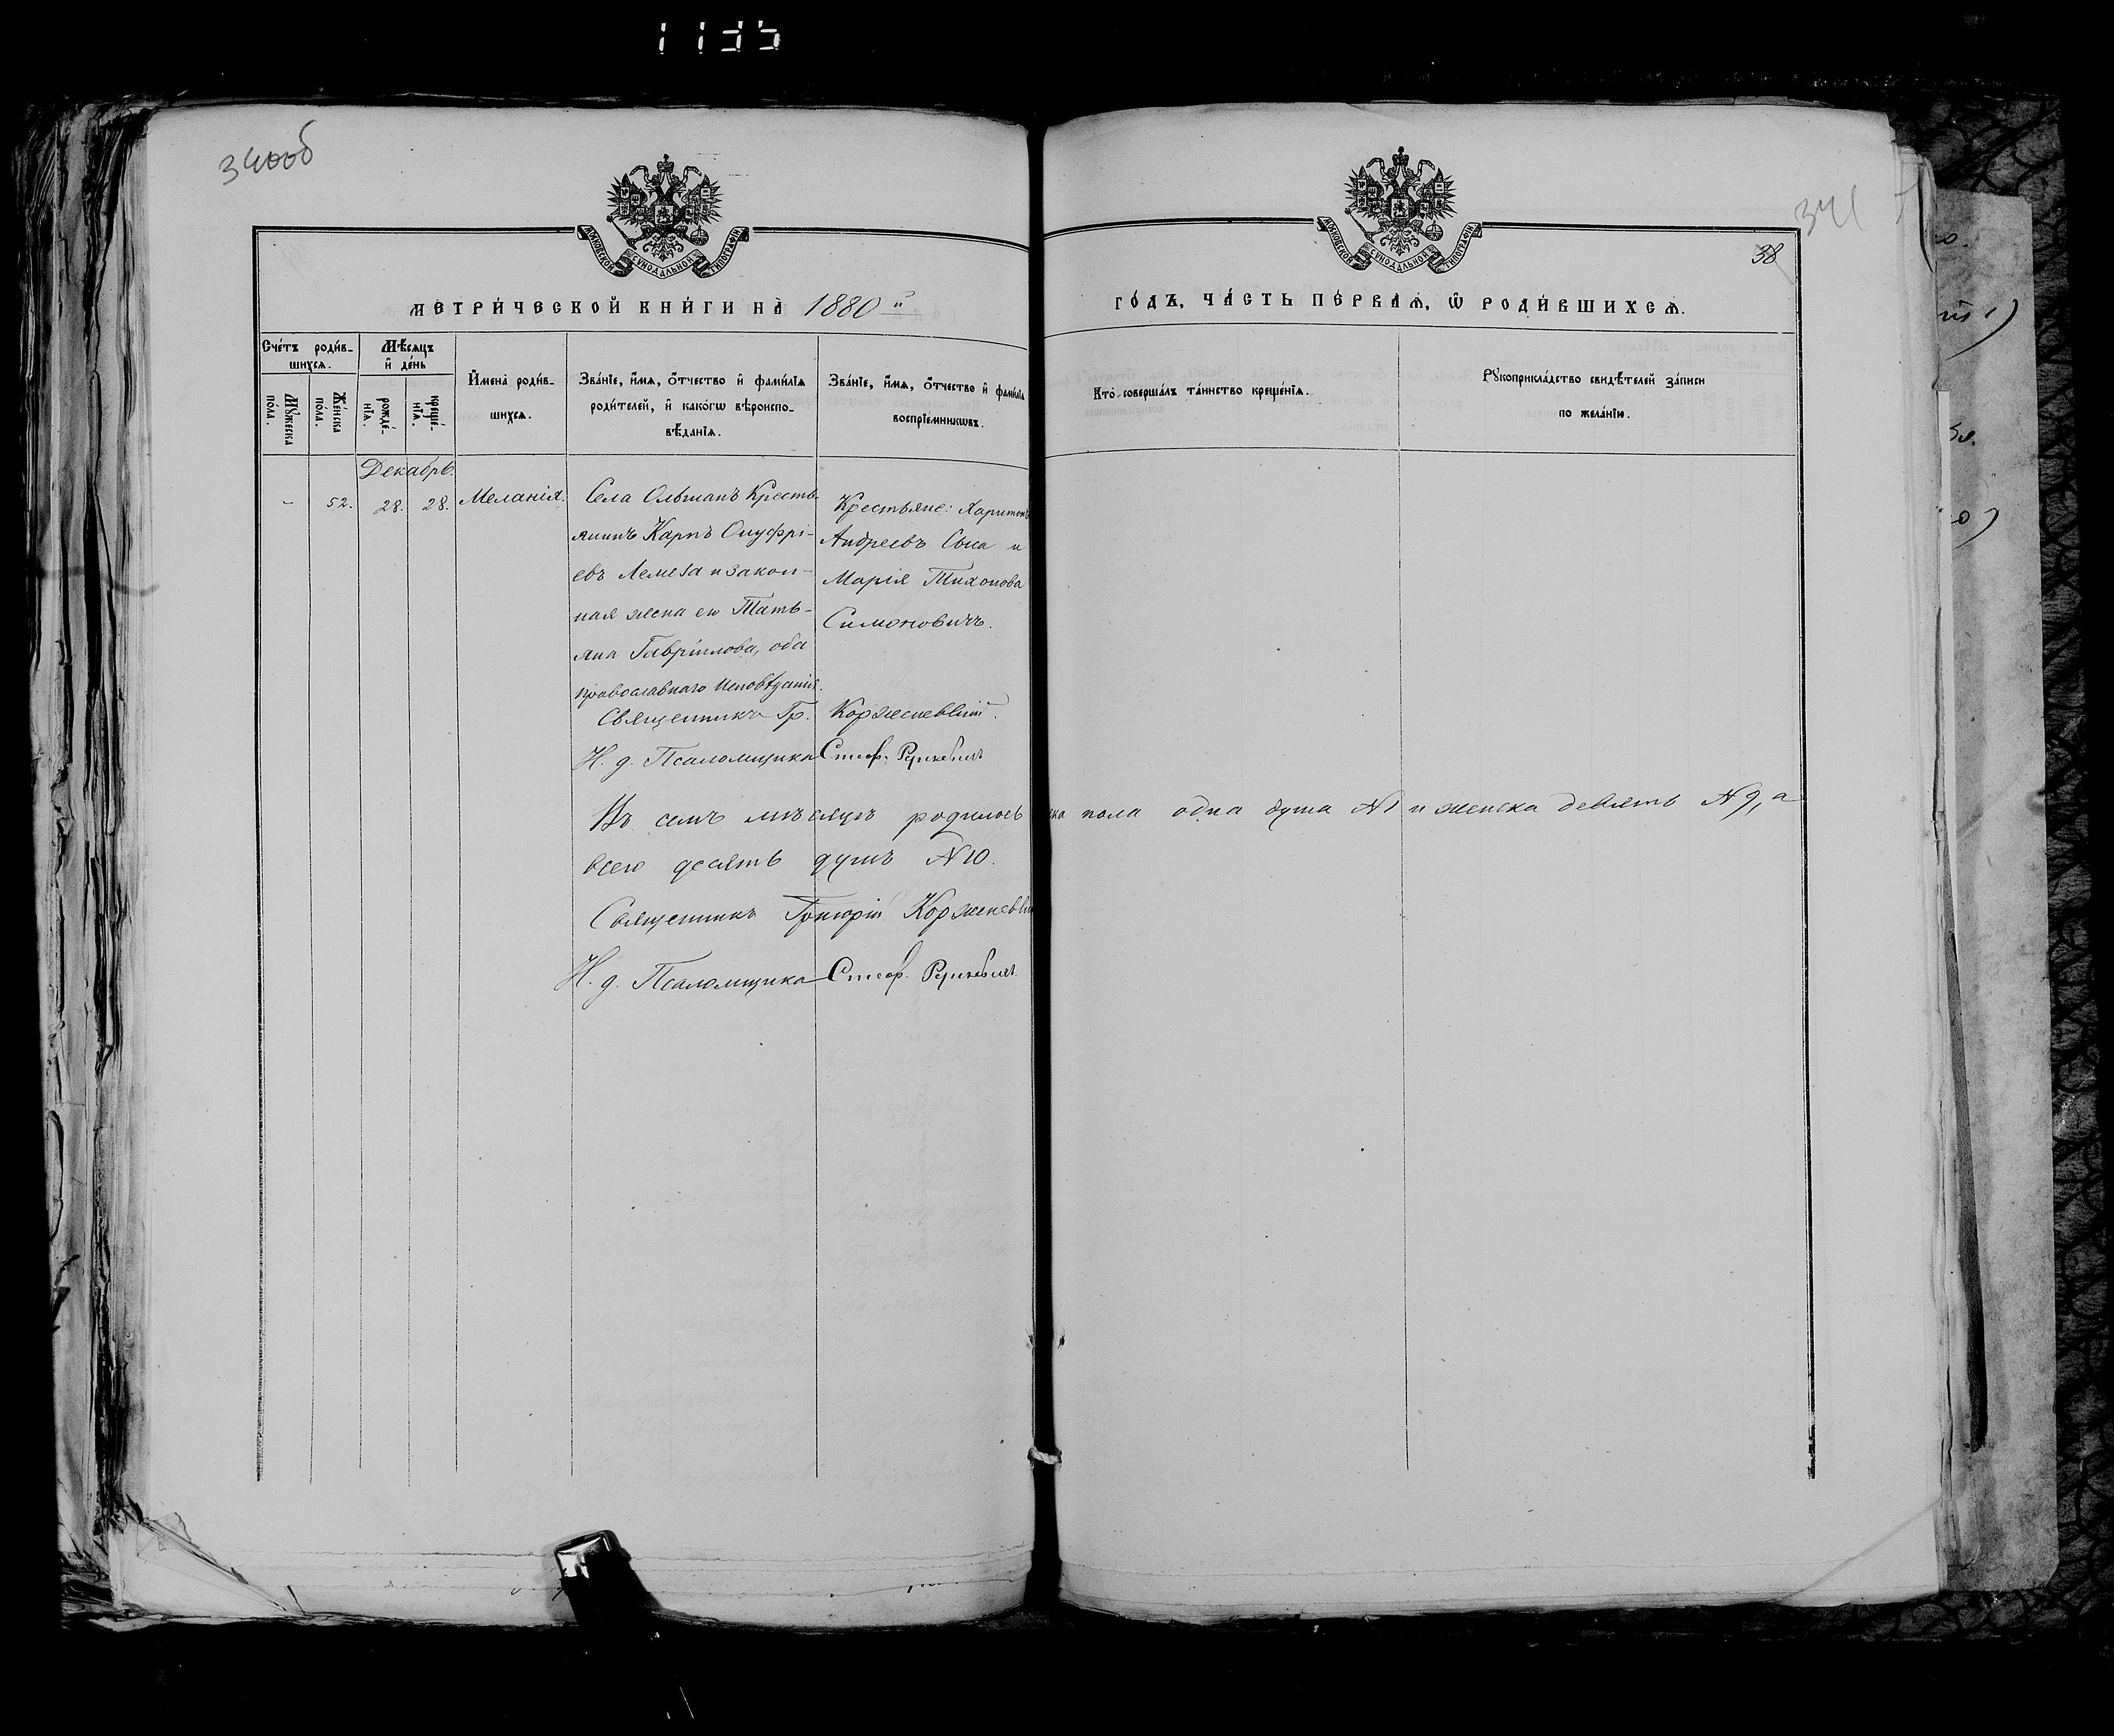 1135
340об
341
МОСКОВСКОЙ СѴНОДАЛЬНОЙ ТИПОГРАФІИ
МОСКОВСКОЙ СѴНОДАЛЬНОЙ ТИПОГРАФІИ
38
МЕТРИ́ЧЕСКОЙ КНИ́ГИ НА̀ 1880 й
ГО́ДЪ, ЧА́СТЬ ПЕ́РВАѦ, Ѡ҆ РОДИ́ВШИХСѦ.
Сче́тъ роди́в-
шихсѧ.
Мѹ́жеска
по́ла.
Же́нска
по́ла.
Мѣ́сѧцъ
и҆ де́нь
рожде́-
нїѧ.
креще́-
нїѧ.
И҆мена̀ роди́в-
шихсѧ.
Зва́нїе, и҆́мѧ, ѻ҆́тчество и҆ фами́лїѧ
роди́телей, и҆ како́гѡ вѣроиспо-
вѣ́данїѧ.
Зва́нїе, и҆́мѧ, ѻ҆́тчество и҆ фами́лїѧ
воспрїе́мникѡвъ.
Кто̀ соверша́лъ та́инство креще́нїѧ.
Рѹкоприкла́дство свидѣ́телей за́писи
по жела́нїю.
Декабрь.
- 52. 28. 28. Меланія.
Села Ольманъ Кресть-
янинъ Карпъ Онуфрі-
евъ Лемеза и закон-
ная жена его Тать-
яна Гавріилова, оба
православнаго исповѣданія.
Крестьяне: Харитонъ
Андреевъ Соха и
Марія Тихонова
Симоновичъ.
Священникъ Гр. Корженевскій.
Н. д. Псаломщика Стеф.
Въ семъ мѣсяцѣ родилось ска пола одна душа №1 и женска девять №9, а
всего десять душъ №10.
Священникъ Григорій Корженевскій
Н. д. Псаломщика Стеф.